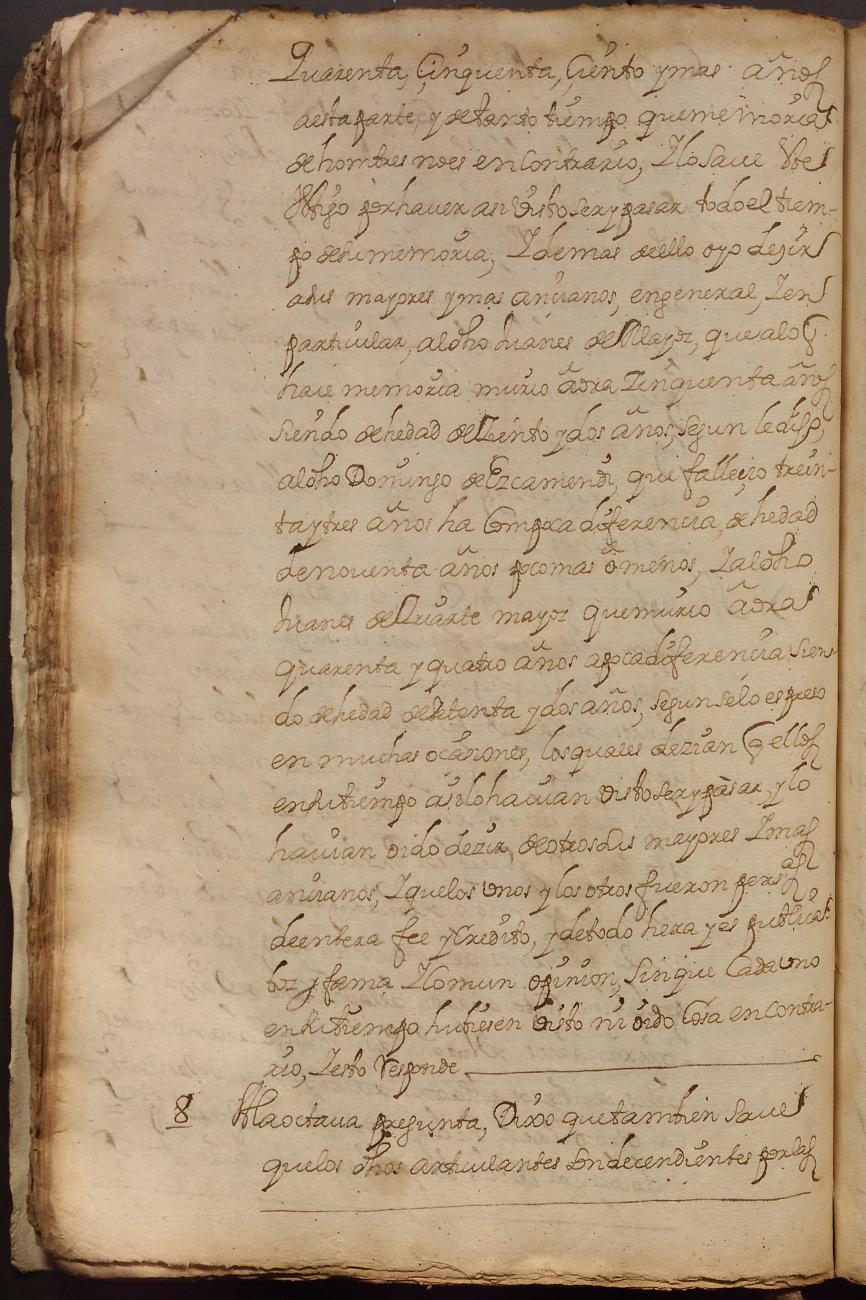 Quarenta, Çinquenta, Çiento y mas años
desta parte, y de tanto tiempo que memoria
de hombres no es en contrario, Y lo save este
testigo por haver asi visto ser y pasar todo el tiem-
po de su memoria, Y demas de ello oyo dezir
a sus mayores y mas ancianos, en general, Y en
particular, al dho Juanes de mayor, que a lo q
haze memoria murio aora Zinquenta años
siendo de hedad de Ziento y dos años, segun le dijo,
al dho Domingo de Ezcamendi, que falleçio trein-
ta y tres años ha Con poca diferencia, de hedad
de noventa años poco mas o menos, Y al dho
Juanes de Yriarte mayor que murio aora
quarenta y quatro años a poca diferencia sien-
do de hedad de setenta y dos años, segun se lo espreso
en muchas ocasiones, los quales dezian q ellos
en su tiempo asi lo havian visto ser y pasar, y lo
havian oido dezir, de otros sus mayores Y mas
ancianos, Y que los unos y los otros fueron persas
de entera fee y Credito, y de todo hera y es publica
boz y fama Y Comun opinion, sin que Cada uno
en su tiempo hubiesen visto ni oido Cosa en contra-
rio, Y esto Responde
8 A la octava pregunta, Dixo que tambien save
que los dhos articulantes son decendientes por las